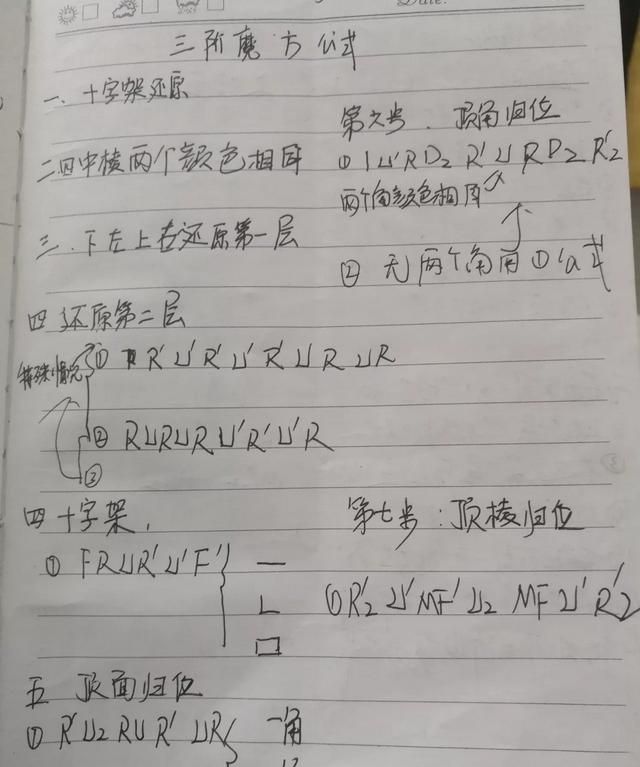 Date:
三阶魔方公式
一、十字架还原
二四中棱两个颜色相同
三、下左上右还原第一层
四 还原第二层
特殊情况
① R' U' R' U' R' U R U R
② R U R U R U' R' U' R
③
四 十字架,
① F R U R' U' F' } 一
L
口
五 顶面归位
① R' U2 R U R' U R } 一角
第六步、顶角归位
① U' R D2 R' U R D2 R'2
两个角颜色相同
② 无两个角用①公式
第七步:顶棱归位
① R'2 U' M F' U2 M F U' R'2